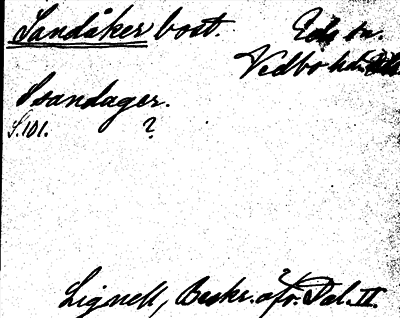 Sandåker bost. Eds sn.
Vedbo hd.
Isandager.
S. 101. ?
Lignell, Beskr. öfv. Dal. II.